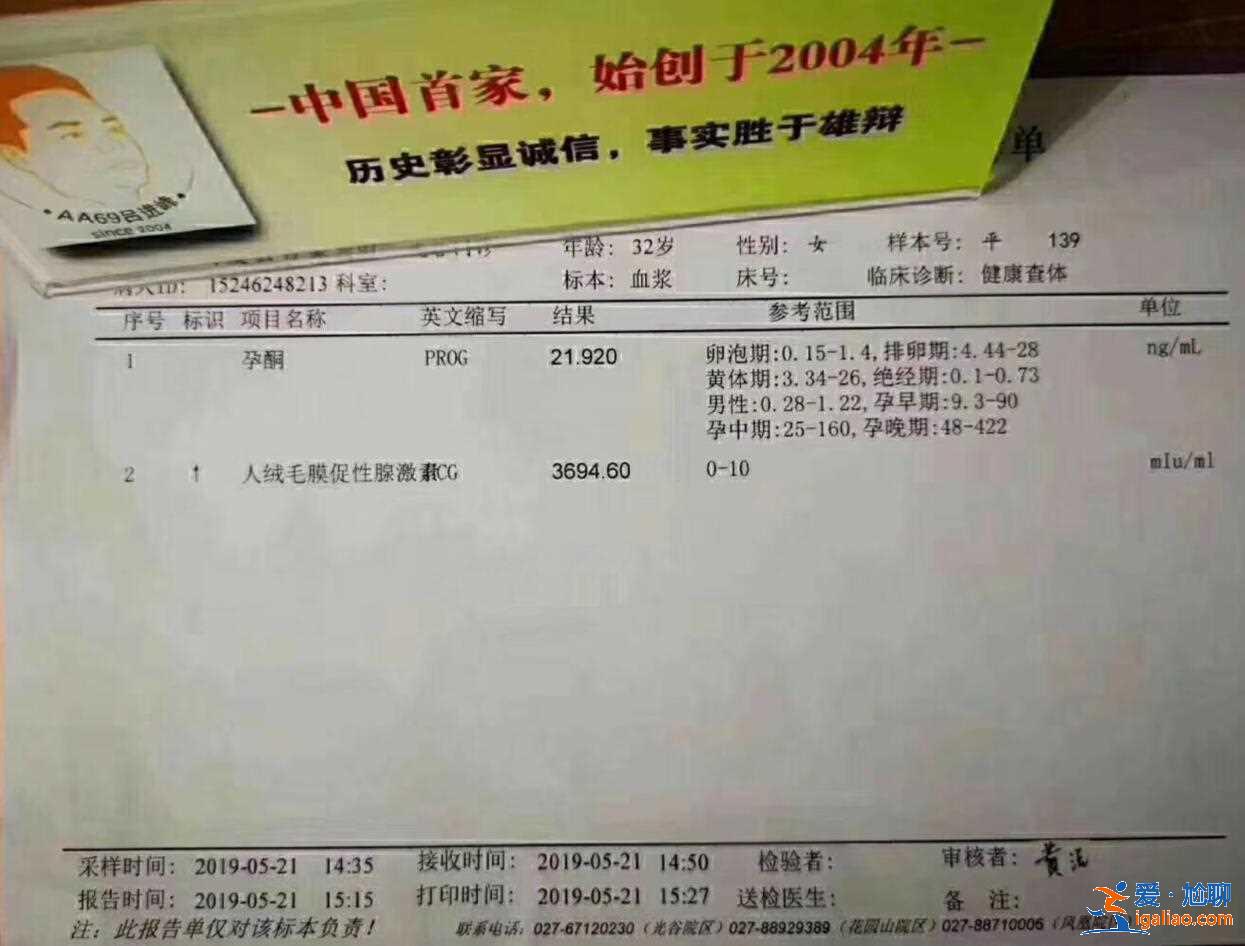 -中国首家，始创于2004年-
历史彰显诚信，事实胜于雄辩
AA69吕进峰
since 2004
单
年龄： 32岁 性别： 女 样本号： 平 139
病人ID： 15246248213 科室： 标本： 血浆 床号： 临床诊断： 健康查体
序号 标识 项目名称 英文缩写 结果 参考范围 单位
1 孕酮 PROG 21.920 卵泡期:0.15-1.4,排卵期:4.44-28 ng/mL
黄体期:3.34-26,绝经期:0.1-0.73
男性:0.28-1.22,孕早期:9.3-90
孕中期:25-160,孕晚期:48-422
2 ↑ 人绒毛膜促性腺激素 HCG 3694.60 0-10 mIu/ml
采样时间： 2019-05-21 14:35 接收时间： 2019-05-21 14:50 检验者： 审核者：
报告时间： 2019-05-21 15:15 打印时间： 2019-05-21 15:27 送检医生： 备 注：
注：此报告单仅对该标本负责！ 联系电话：027-67120230（光谷院区）027-88929389（花园山院区）027-88710005（凤凰院
爱·尬聊
igaliao.com